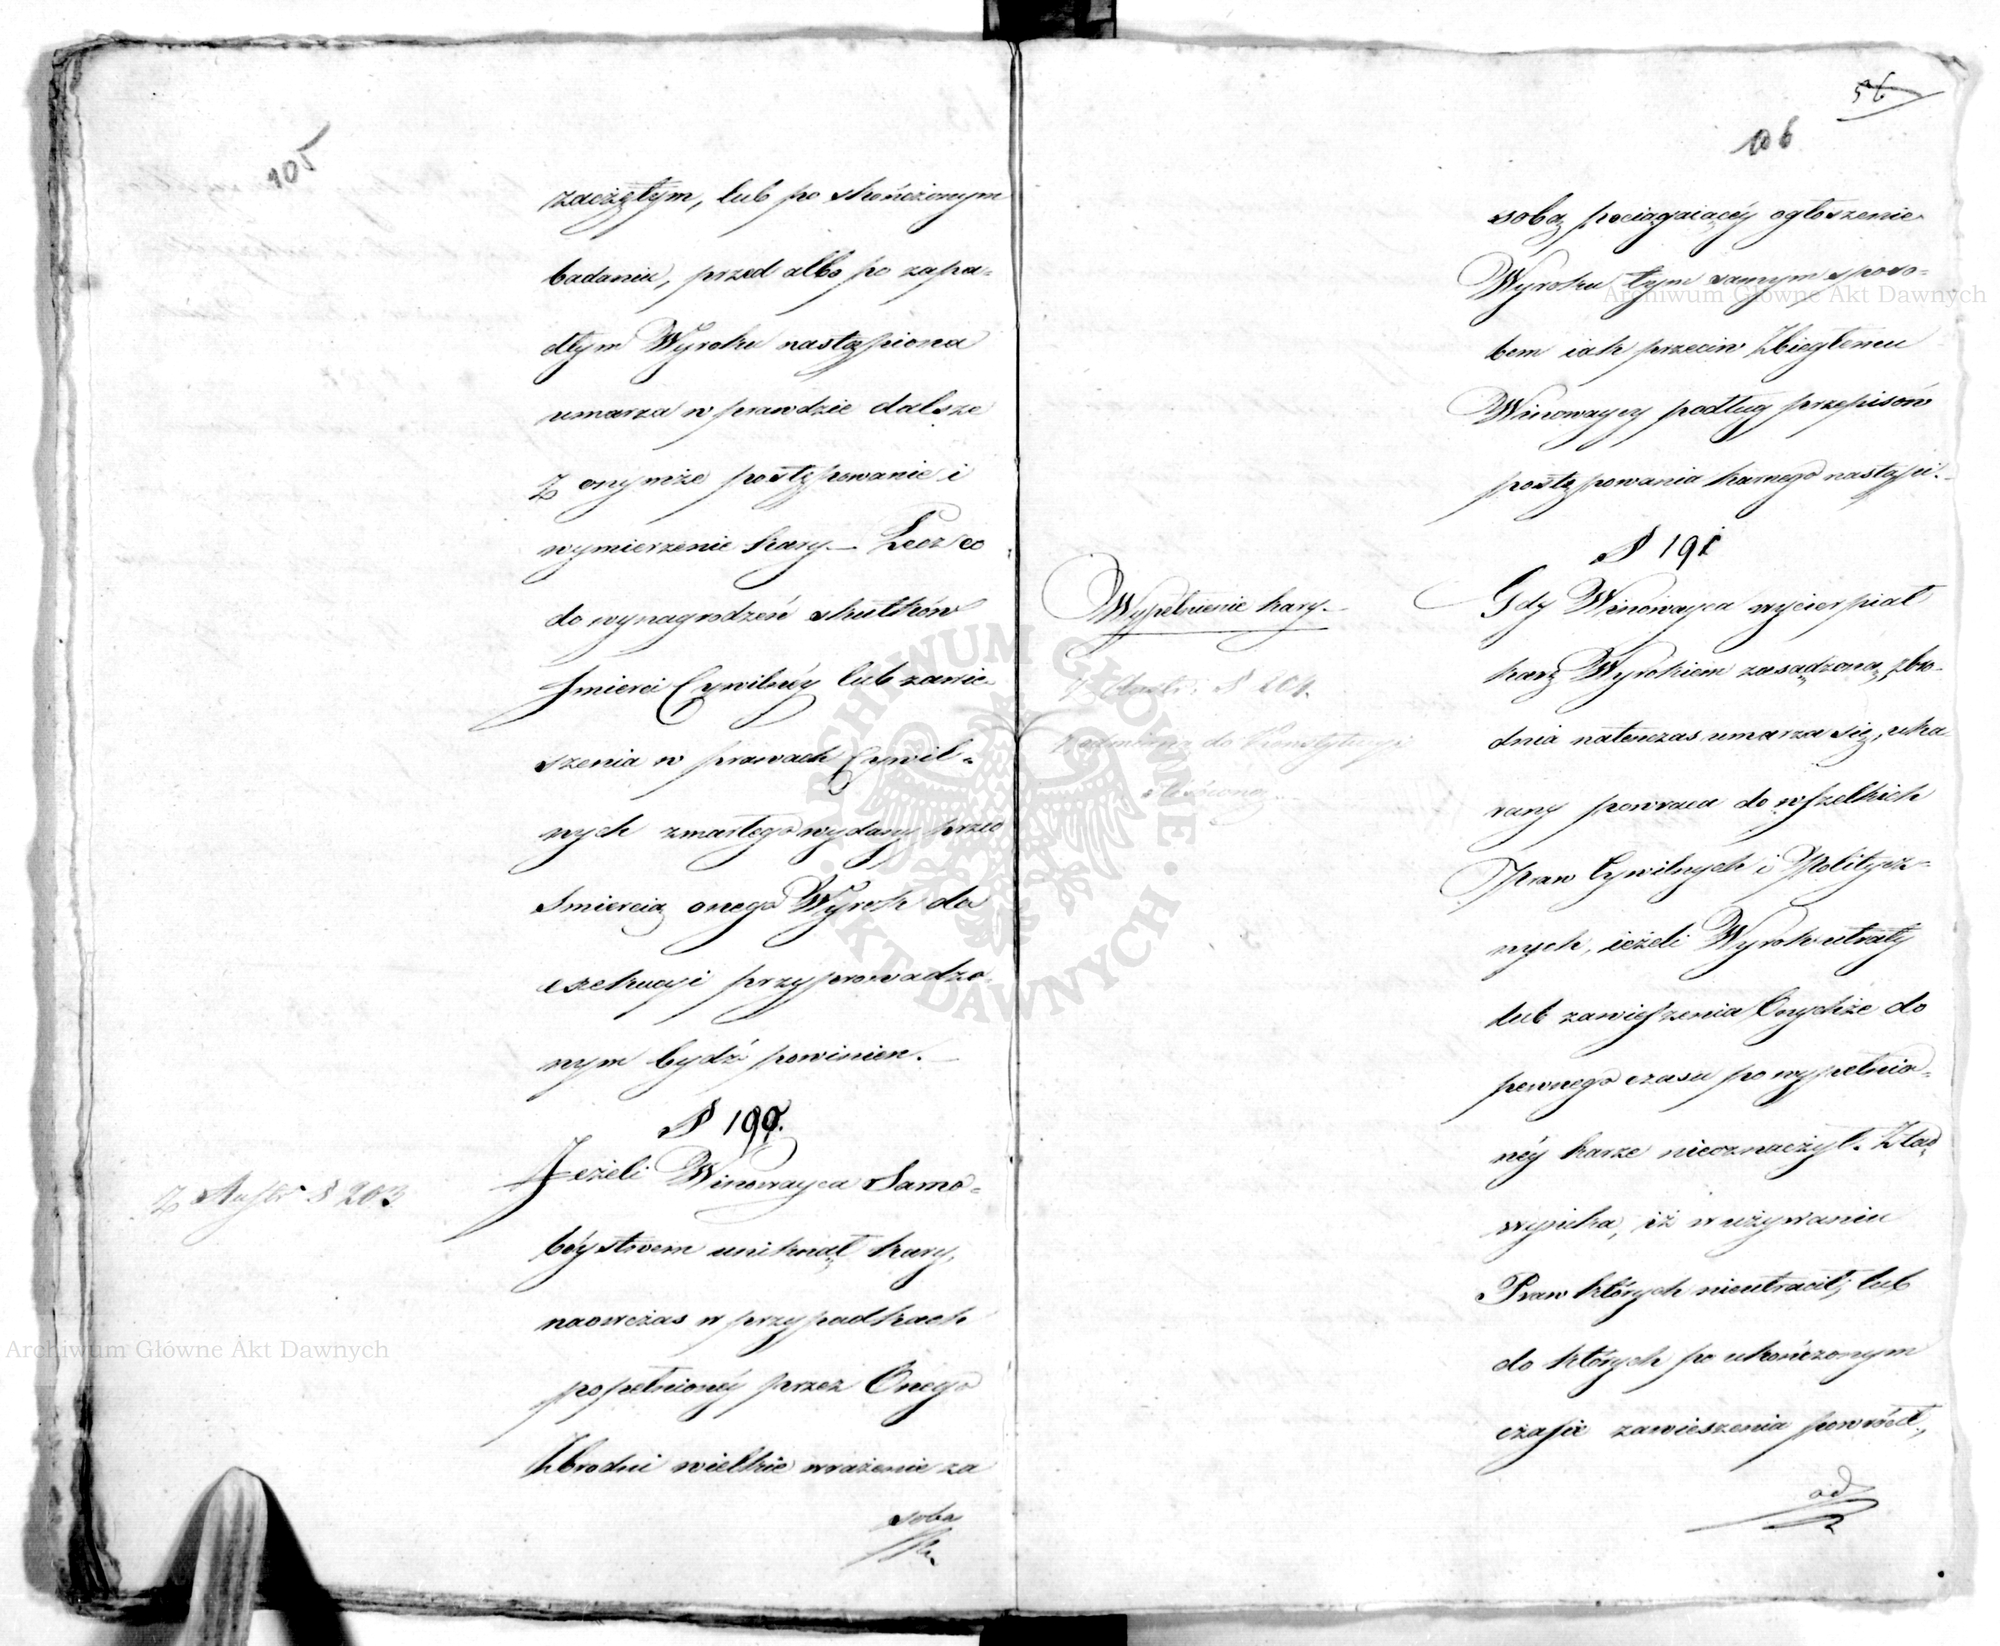 105
zaczętym, lub po skończonym
badaniu, przed albo po zapa-
dłym Wyroku nastąpiona
umarza w prawdzie dalsze
Z onymże postępowanie i
wymierzenie kary. – Lecz co
do wynagrodzeń skutków
śmierci Cywilnéy lub zawie-
szenia w prawach Cywil-
nych zmarłego wydany przed
śmiercią onego Wyrok do
exekucyi przyprowadzo-
nym bydź powinien. –
§ 190.
Z Austr § 203
Jeżeli Winowayca Samo-
bóystwem uniknął kary,
naówczas w przypadkach
popełnionéy przez Onego
Zbrodni wielkie wrażenie za
sobą
56
106
sobą pociągaiącéy ogłoszenie
Wyroku tym samym sposo-
bem iak przeciw Zbiegłemu
Winowaycy podług przepisów
postępowania karnego nastąpi. –
§ 191
Wypełnienie kary. –
Z Austr: § 204.
z odmianą do Konstytucyi
stósowną. –
Gdy Winowayca wycierpiał
karę Wyrokiem zasądzoną, zbro-
dnia natenczas umarza się, uka-
rany powraca do wszelkich
Praw Cywilnych i Politycz-
nych, ieżeli Wyrok utraty
lub zawieszenia Onychże do
pewnego czasu po wypełnio-
néy karze nieoznaczył. Ztąd
wynika, iż w używaniu
Praw których nieutracił, lub
do których po ukończonym
czasie zawieszenia powrócił,
od
Archiwum Główne Akt Dawnych
Archiwum Główne Akt Dawnych
ARCHIWUM GŁÓWNE · AKT DAWNYCH ·